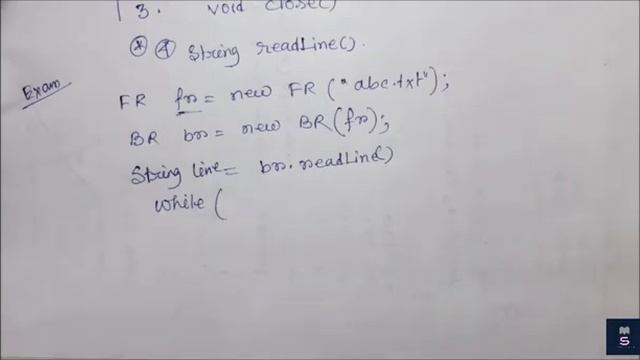 3. void close()
* 4 String readLine().
Exam
FR fr = new FR ("abc.txt");
BR br = new BR(fr);
String line = br.readLine()
while (
S